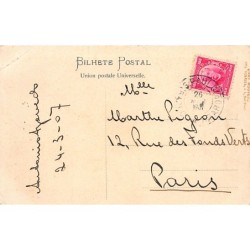 BILHETE POSTAL
Union postale Universelle.
Mlle
Marthe Pigeon
12, Rue des Fonds Verts
Paris
24-3-07